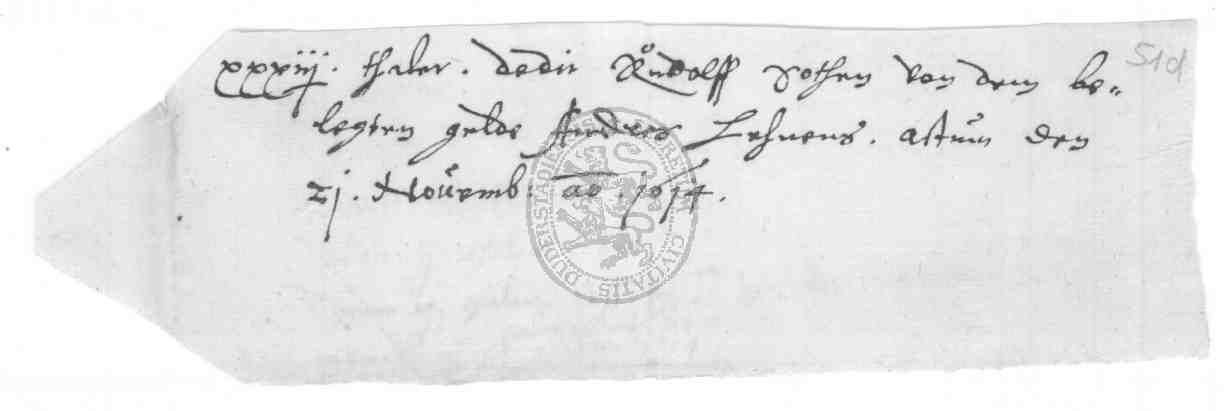 xxxiiij. thaler. dedit Rudolff Rothen von dem be-
legten gelde Andres Lehnens. actum den
21. Nouemb: ao. 1614.
51d
DUDERSTADIENSIS CIVITATIS